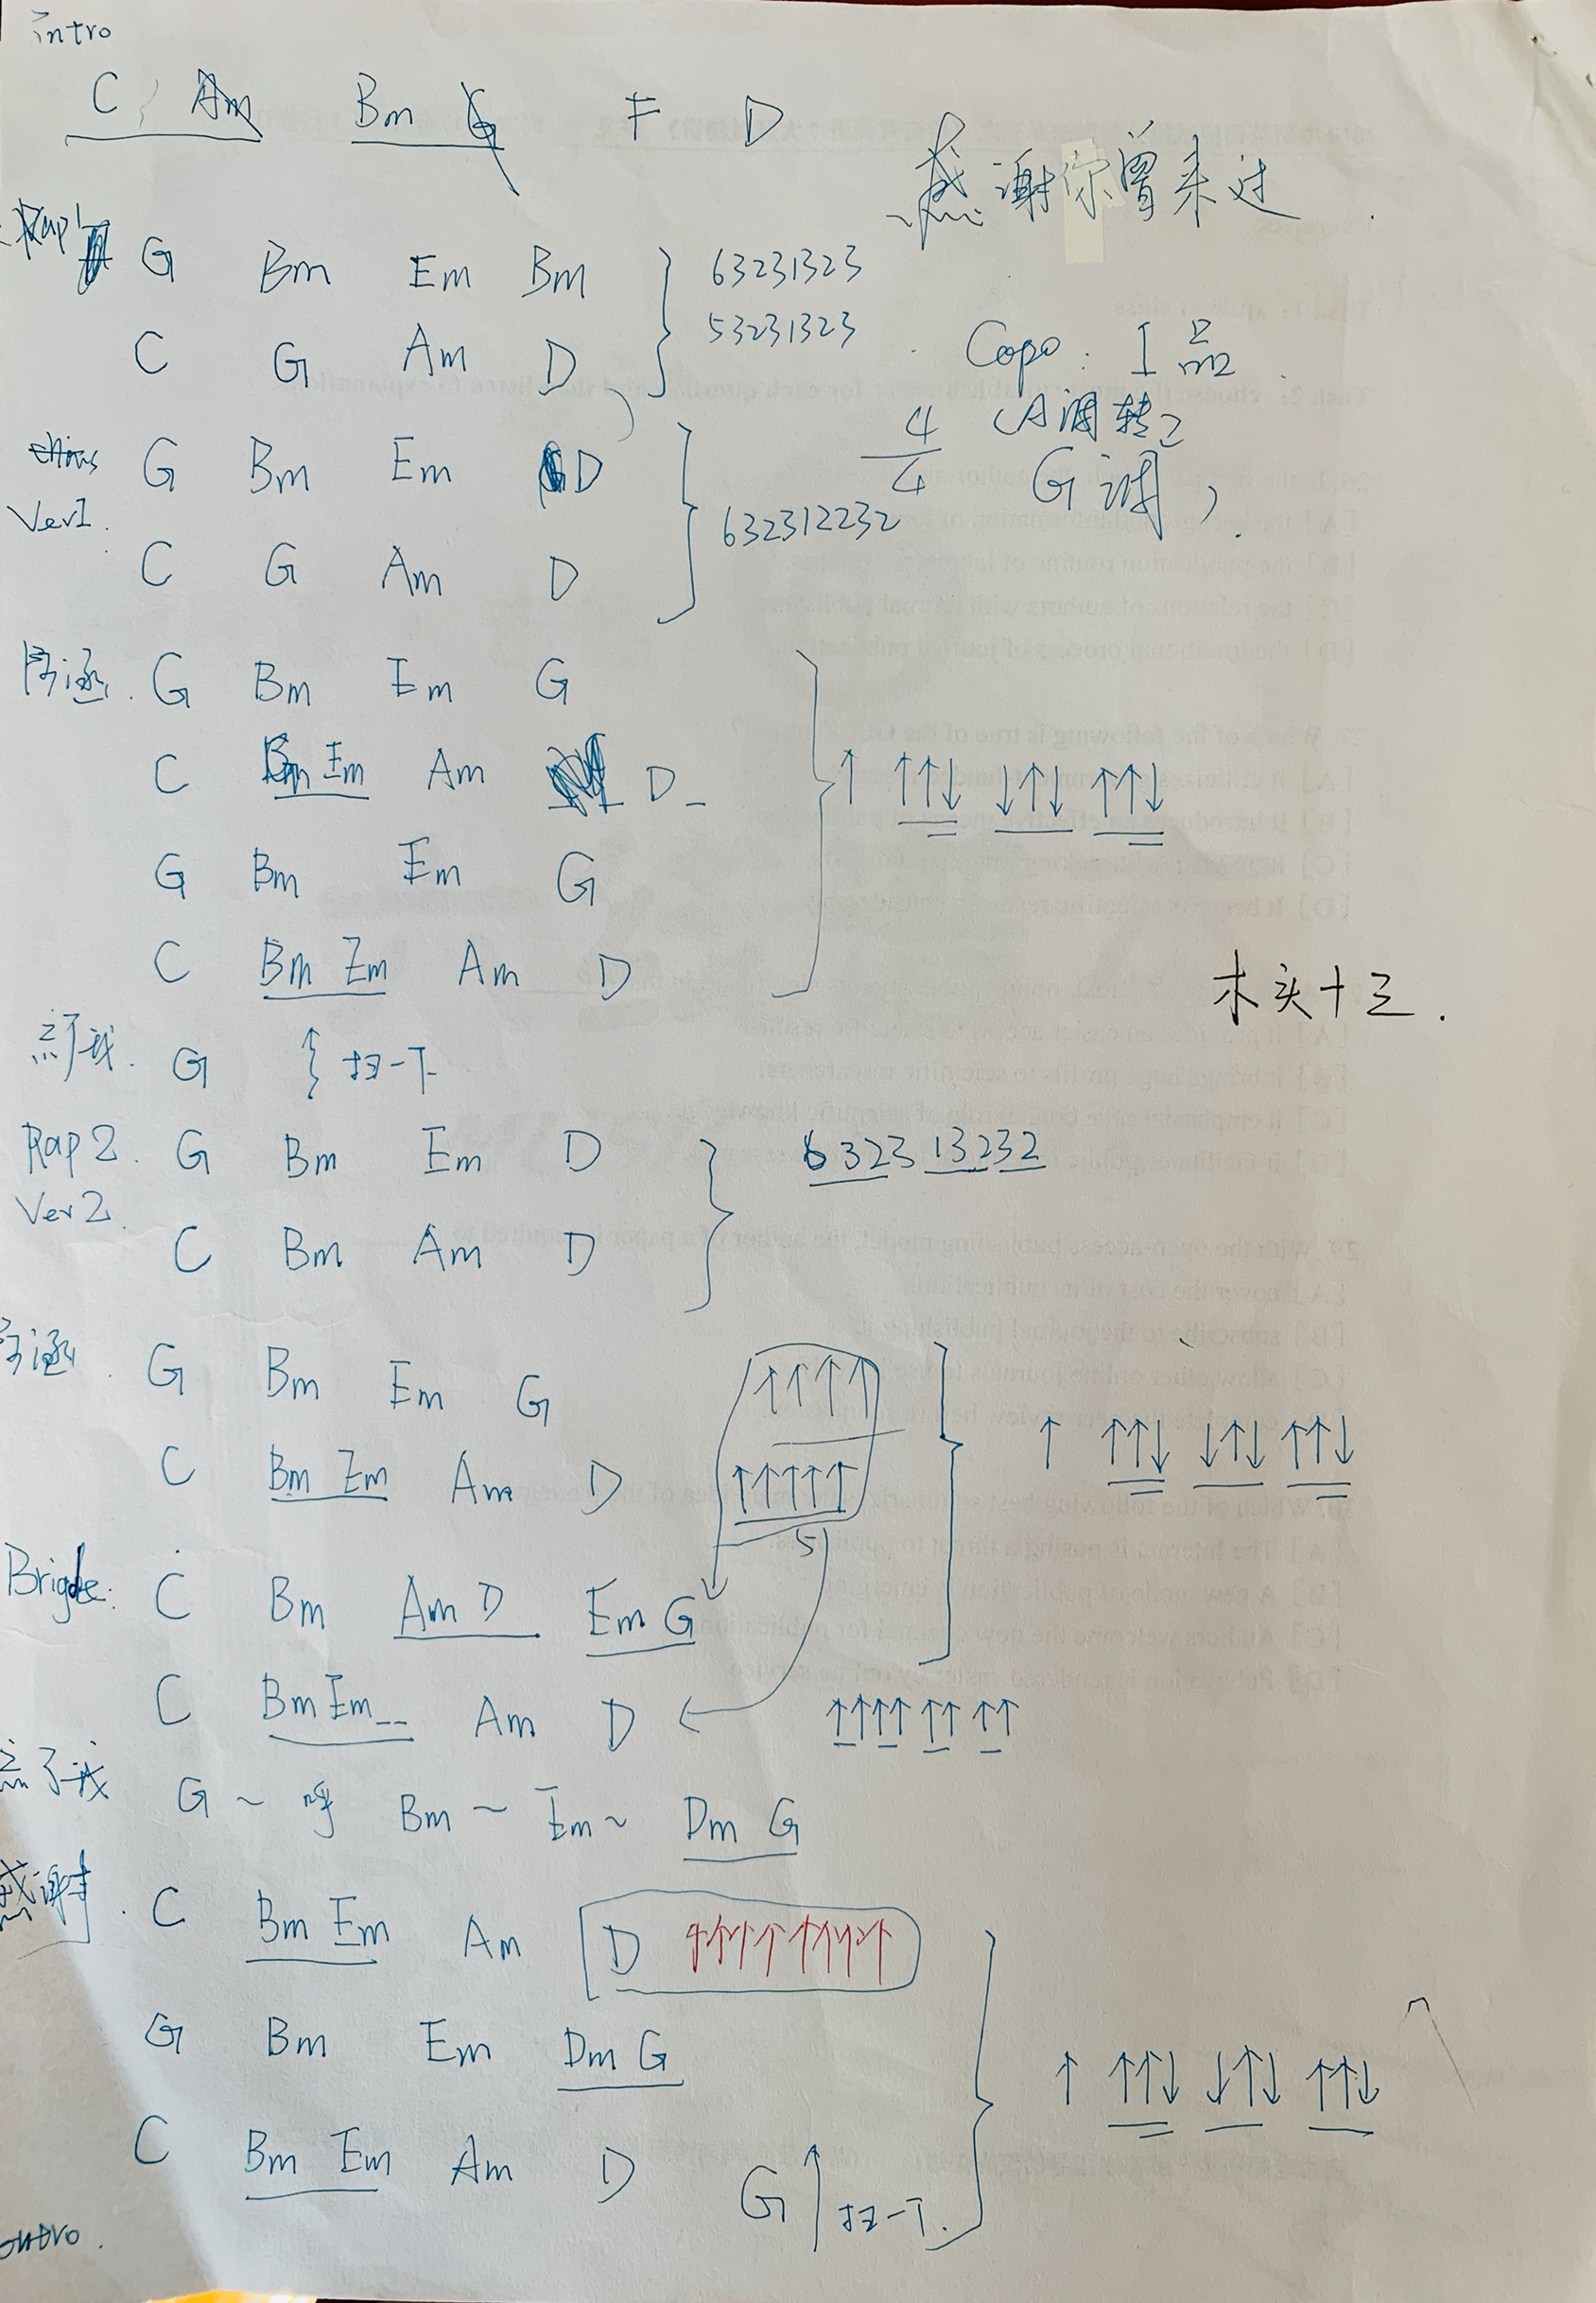 intro
C Bm F D
感谢你曾来过
Rap1 G Bm Em Bm 63231323
C G Am D 53231323
Capo: 1品
4/4 (A调转
G调)
G Bm Em D
Ver1. 632312232
C G Am D
G Bm Em G
C Bm Em Am D_ ↑ ↑↑↓ ↓↑↓ ↑↑↓
G Bm Em G
C Bm Em Am D
木头十三.
G 扫一下
Rap 2. G Bm Em D 6323 13232
Ver 2.
C Bm Am D
G Bm Em G ↑↑↑↑
↑ ↑↑↓ ↓↑↓ ↑↑↓
C Bm Em Am D ↑↑↑↑↑
5
Brigde: C Bm Am D Em G
C Bm Em Am D ↑↑↑↑ ↑↑ ↑↑
G ~ 呼 Bm ~ Em ~ Dm G
感谢 C Bm Em Am D ↑↑↑↑ ↑↑↑↑
G Bm Em Dm G
↑ ↑↑↓ ↓↑↓ ↑↑↓
C Bm Em Am D G ↑ 扫一下.
outro.